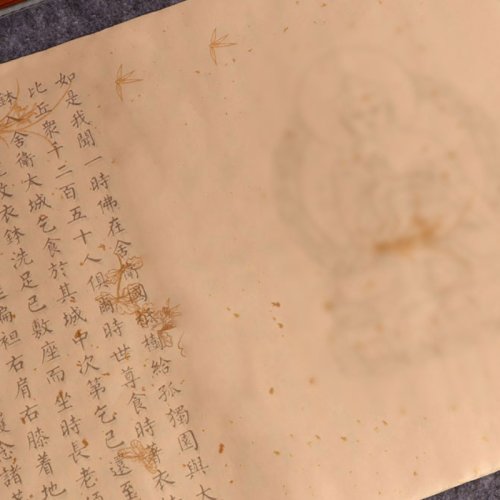 如是我聞一時佛在舍衛國祇樹給孤獨園與大
比丘眾千二百五十人俱爾時世尊食時著衣
鉢入舍衛大城乞食於其城中次第乞已還至
收衣鉢洗足已敷座而坐時長老須
偏袒右肩右膝著地
念諸菩